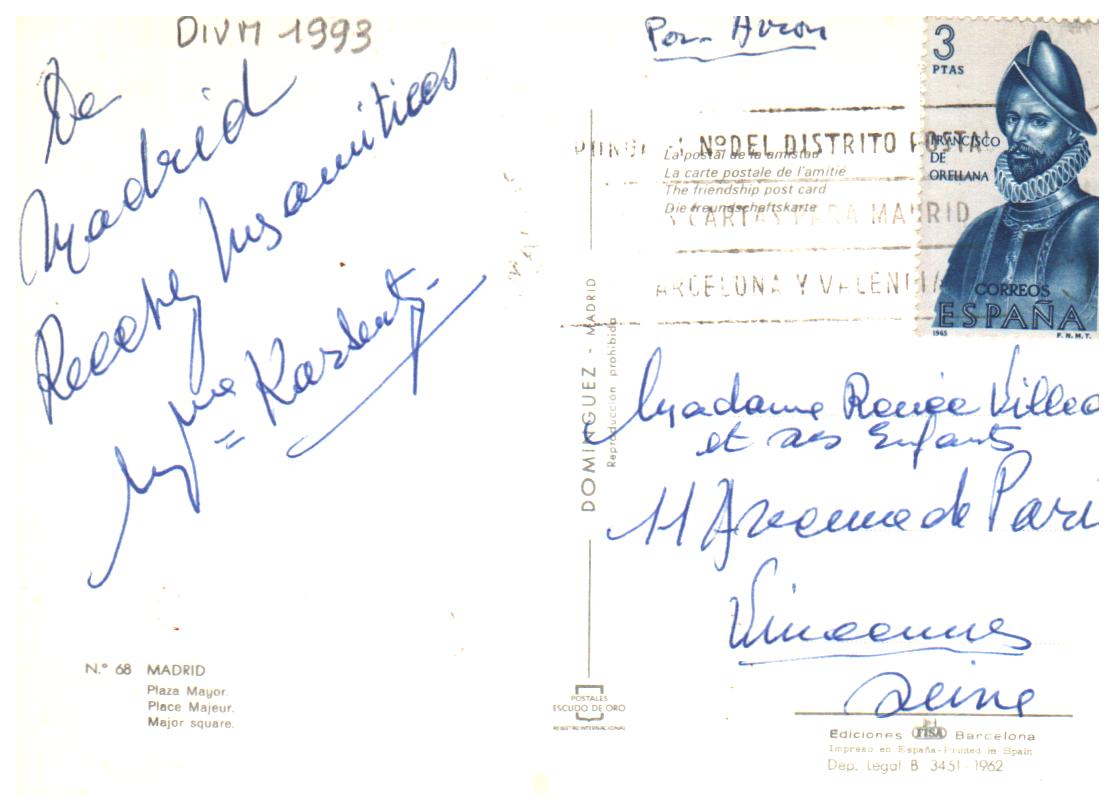 DIVM 1993
De
Madrid
Recevez nos amitiées
Mme Karsenty
N.° 68 MADRID
Plaza Mayor.
Place Majeur.
Major square.
Par Avion
3
PTAS
FRANCISCO
DE
ORELLANA
CORREOS
ESPAÑA
1965 F.N.M.T.
Nº DEL DISTRITO POSTAL
CARTAS PARA MADRID
ARCELONA Y VALENCIA
La postal de la amistad
La carte postale de l'amitié
The friendship post card
Die freundschaftskarte
DOMINGUEZ - MADRID
Reproducción prohibida
Madame Renée
et ses Enfants
11 Avenue de Pari
Vincennes
Seine
POSTALES
ESCUDO DE ORO
REGISTRO INTERNACIONAL
Ediciones FISA Barcelona
Impreso en España-Printed in Spain
Dep. Legal B 3451-1962